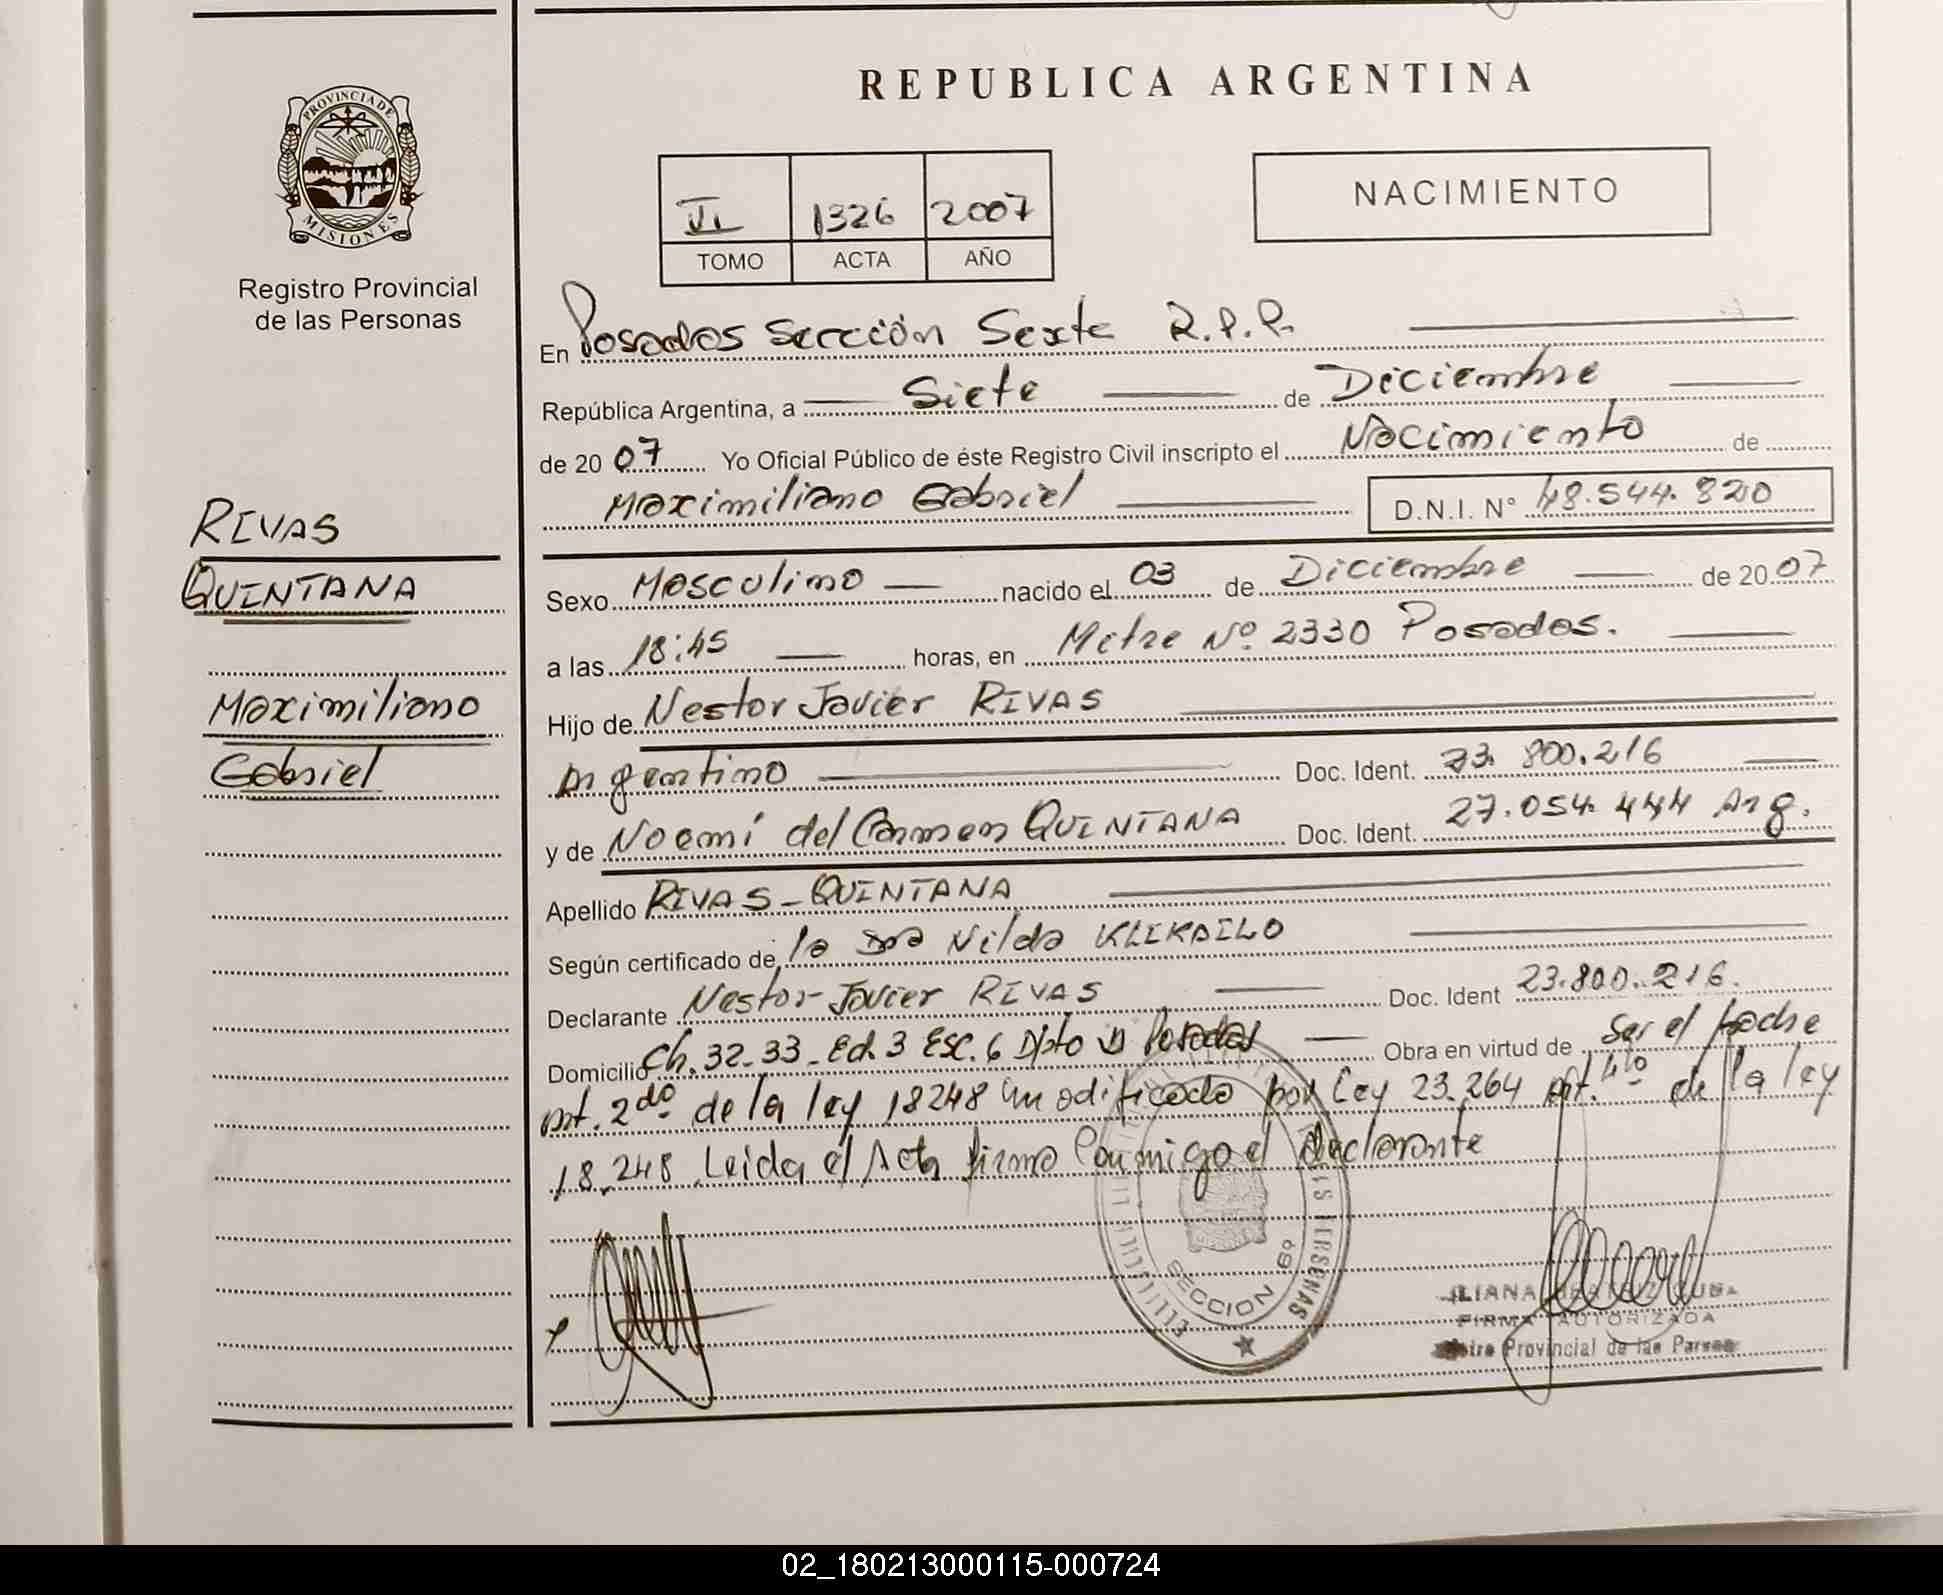 REPUBLICA ARGENTINA
PROVINCIA DE
MISIONES
Registro Provincial
de las Personas
VI 1326 2007
TOMO ACTA AÑO
NACIMIENTO
RIVAS
QUINTANA
Maximiliano
Gabriel
En Posadas Sección Sexta R.P.P.
República Argentina, a Siete de Diciembre
de 2007 Yo Oficial Público de éste Registro Civil inscripto el Nacimiento de
Maximiliano Gabriel D.N.I. N° 48.544.820
Sexo Masculino nacido el 03 de Diciembre de 2007
a las 18:45 horas, en Mitre Nº 2330 Posadas.
Hijo de Nestor Javier RIVAS
Argentino Doc. Ident. 23.800.216
y de Noemí del Carmen QUINTANA Doc. Ident. 27.054.444 Arg.
Apellido RIVAS-QUINTANA
Según certificado de la Dra Nilda
Declarante Nestor Javier RIVAS Doc. Ident 23.800.216.
Domicilio Ch. 32-33-Ed. 3 Esc. 6 Dpto D Posadas Obra en virtud de Ser el Padre
Art. 2do de la ley 18248 modificado por Ley 23.264 Art. 4to de la ley
18.248 Leida el Acta firma Conmigo el declarante
SECCION 6º
PERSONAS
FIRMA AUTORIZADA
Provincial de las
02_180213000115-000724